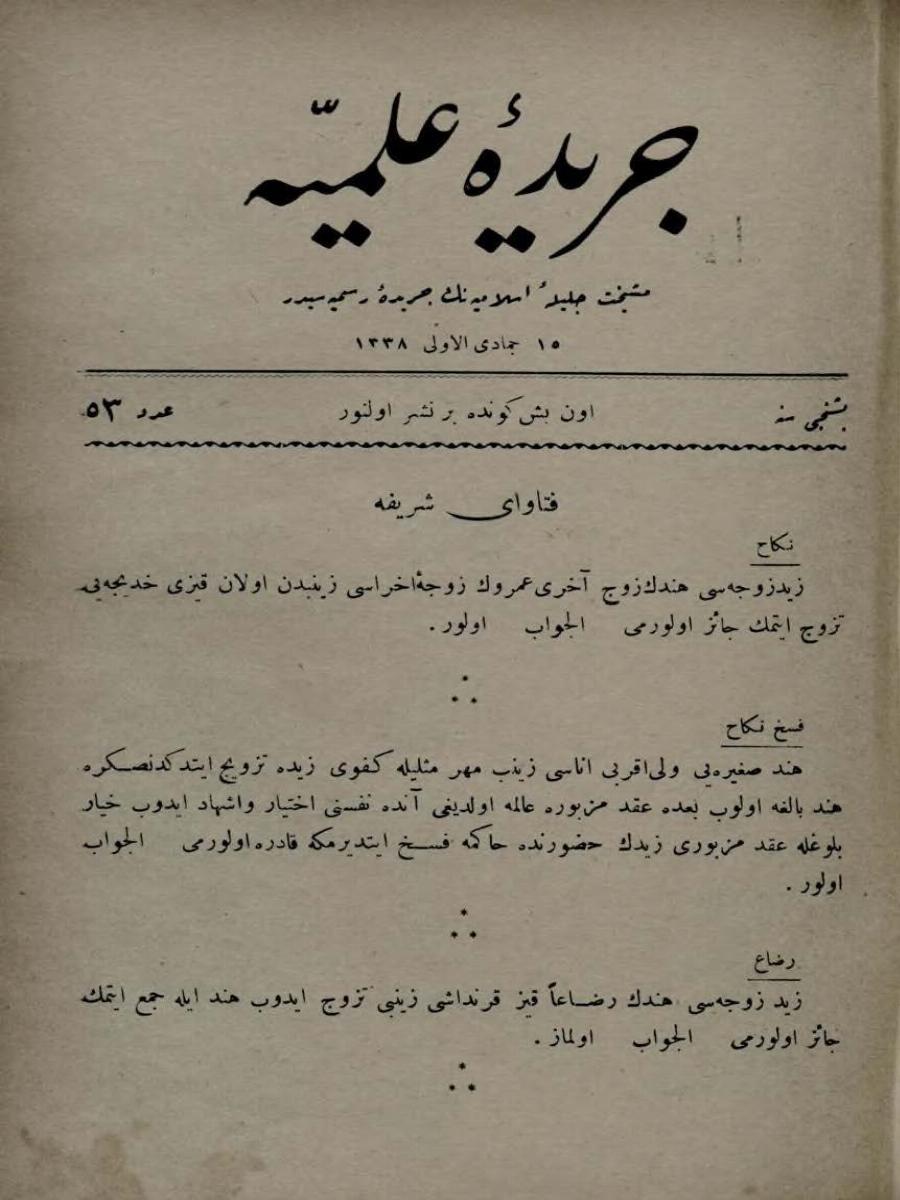 جريدۀ علميّه
مشيخت جليلۀ اسلاميه نك جريدۀ رسميه سيدر
١٥ جمادى الاولى ١٣٣٨
بشنجى سنه اون بش كونده بر نشر اولنور عدد ٥٣
فتاواى شريفه
نكاح
زيد زوجه‌سى هندك زوج آخرى عمروك زوجۀ اخراسى زينبدن اولان قيزى خديجه‌يى
تزوج ايتمك جائز اولورمى الجواب اولور .
فسخ نكاح
هند صغيره‌يى ولى اقربى اناسى زينب مهر مثليله كفوى زيده تزويج ايتدكدنصكره
هند بالغه اولوب بعده عقد مزبوره عالمه اولديغى آنده نفسنى اختيار واشهاد ايدوب خيار
بلوغله عقد مزبورى زيدك حضورنده حاكمه فسخ ايتديرمكه قادره اولورمى الجواب
اولور .
رضاع
زيد زوجه‌سى هندك رضاعاً قيز قرنداشى زينبى تزوج ايدوب هند ايله جمع ايتمك
جائز اولورمى الجواب اولماز .